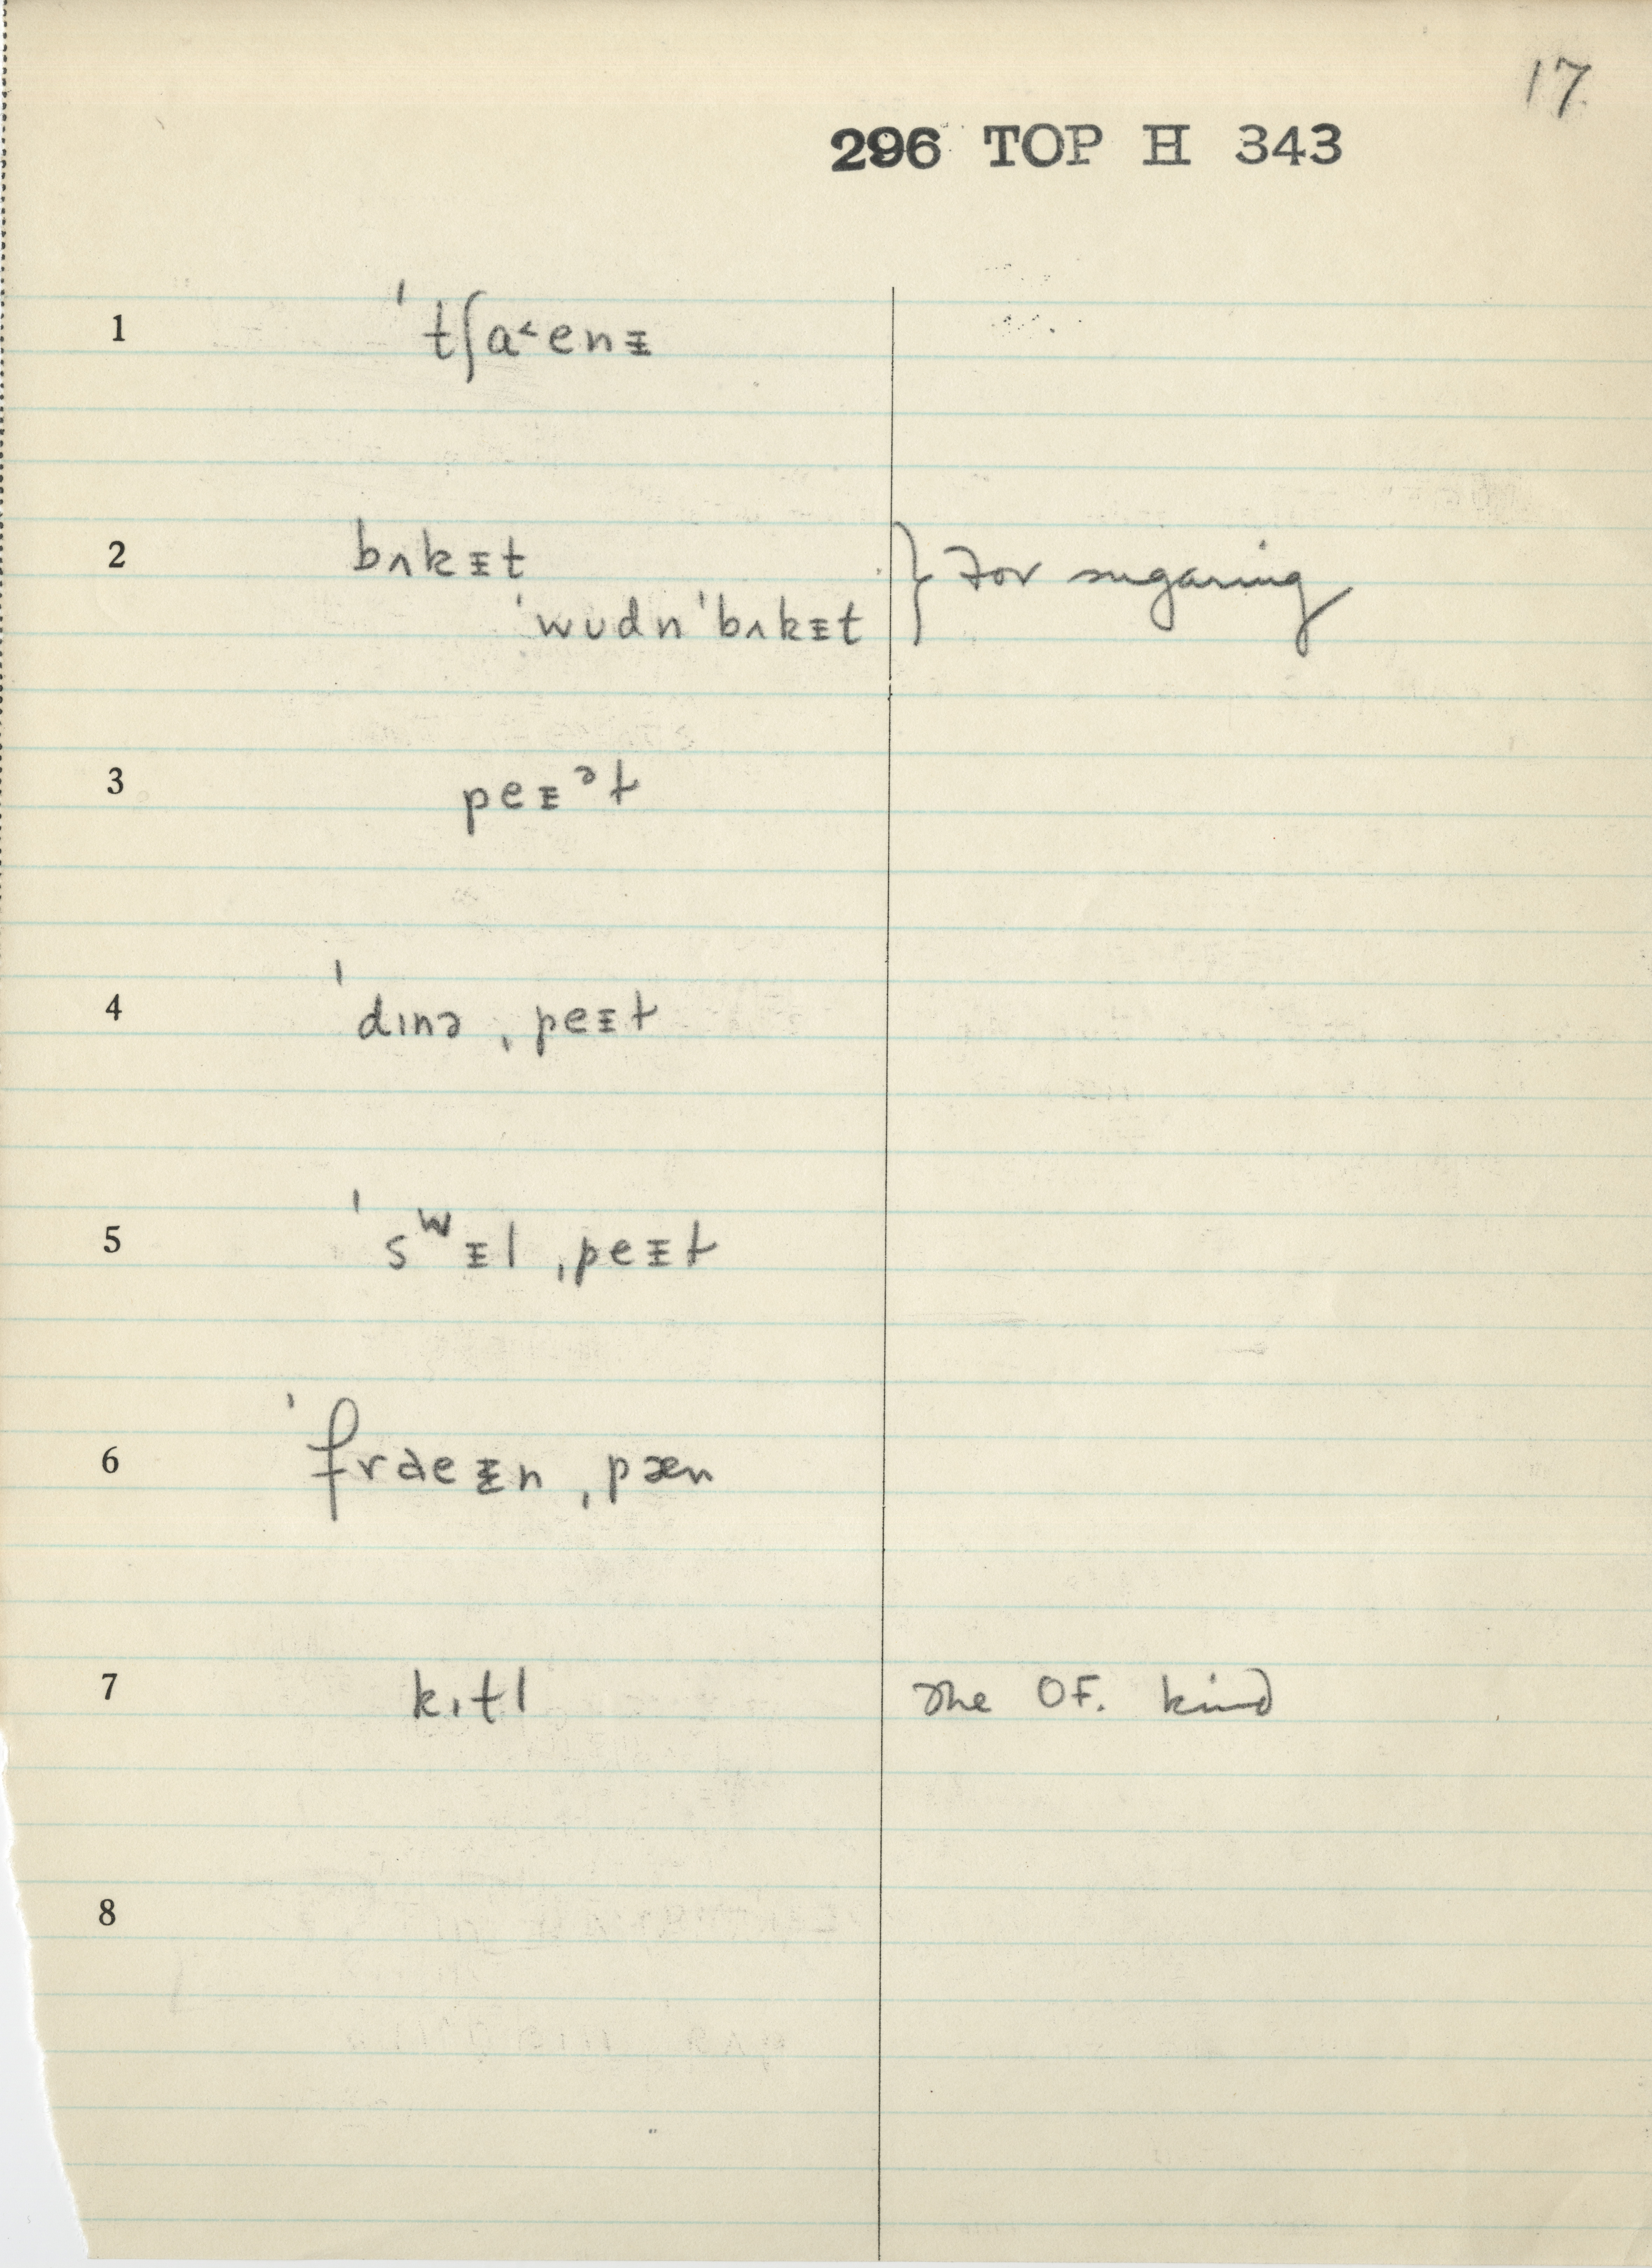 17
296 TOP H 343
1 ˈtʃa˂enᵻ
2 bʌkᵻt
ˈwʊdnˈbʌkᵻt } For sugaring
3 peᵻᵊɫ
4 ˈdɪnə ˌpeᵻɫ
5 ˈsʷᵻl ˌpeᵻɫ
6 ˈfraeᵻn ˌpæn
7 kɪtl The OF. kind
8